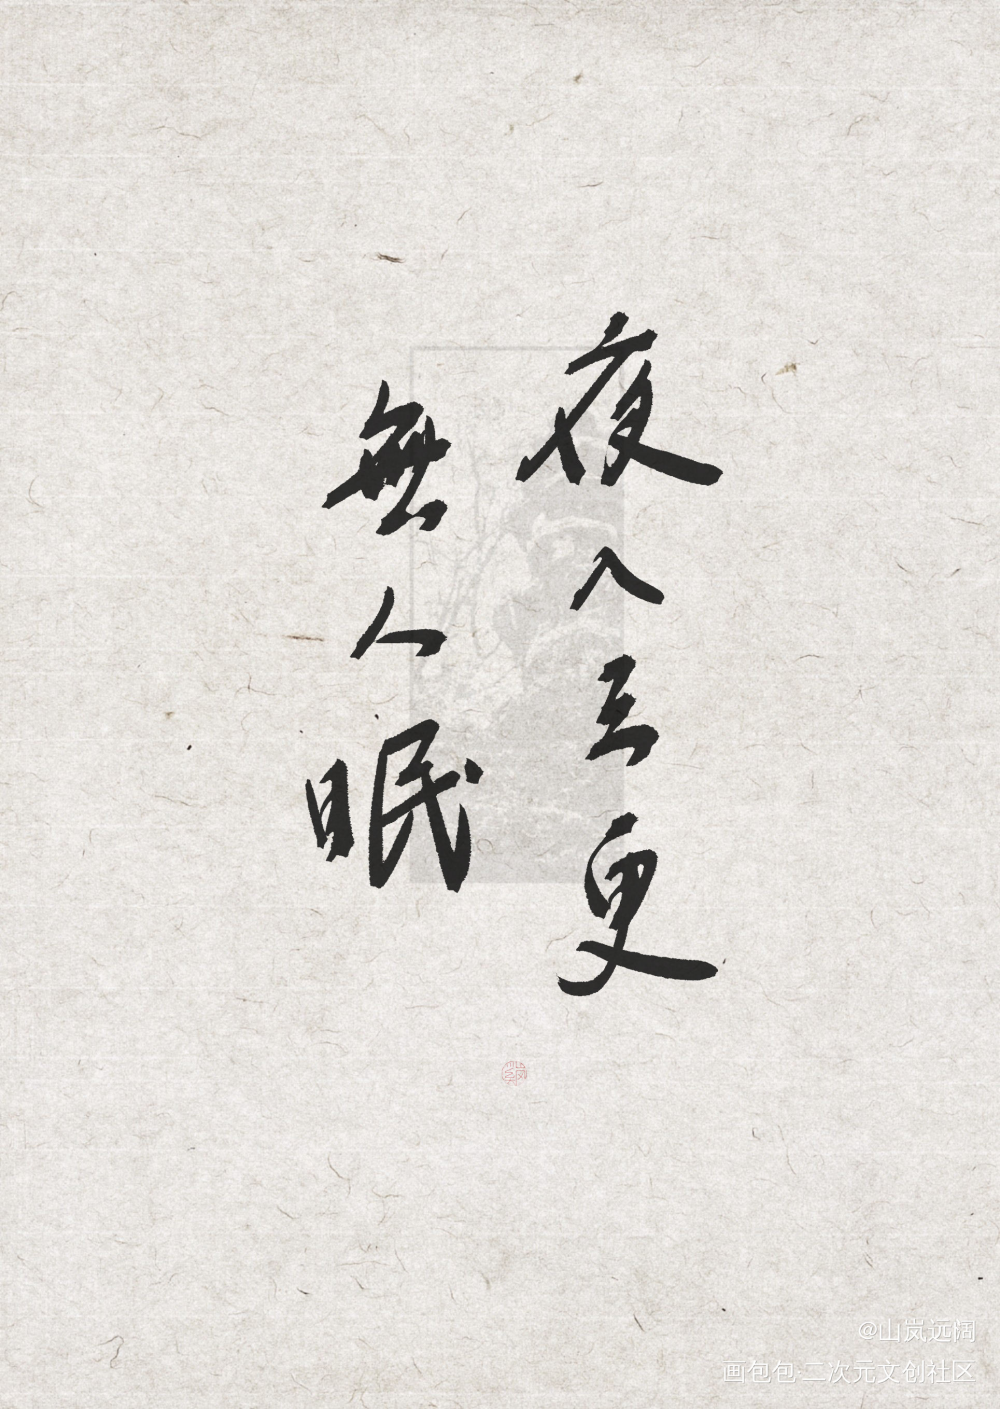 夜入三更
無人眠
@山岚远阔
画包包·二次元文创社区